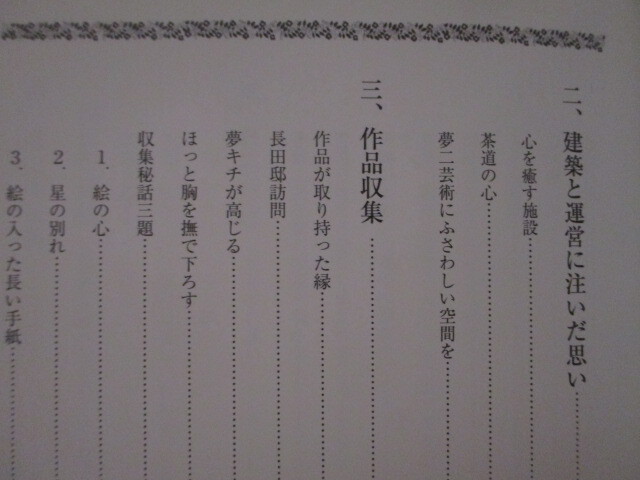 二、建築と運営に注いだ思い……………
心を癒す施設……………
茶道の心……………
夢二芸術にふさわしい空間を……………
三、作品収集……………
作品が取り持った縁……………
長田邸訪問……………
夢キチが高じる……………
ほっと胸を撫で下ろす……………
収集秘話三題……………
1、絵の心……………
2、星の別れ……………
3、絵の入った長い手紙……………